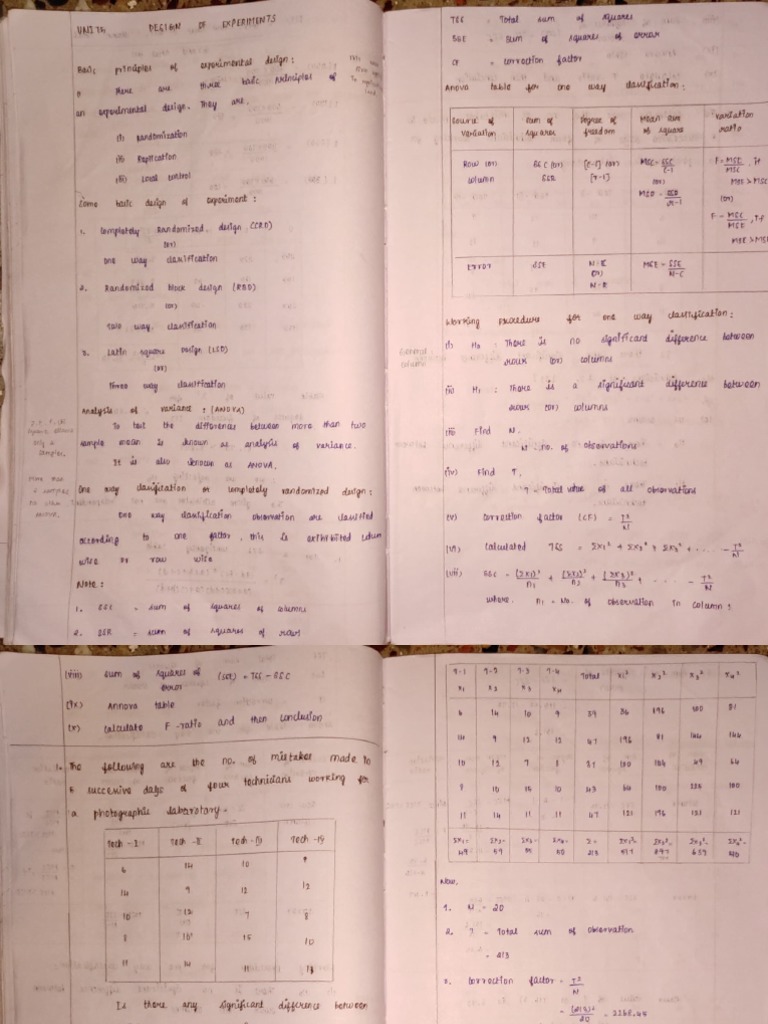 UNIT5 DESIGN OF EXPERIMENTS
Basic principles of experimental design:
There are three basic principles of
an experimental design. They are.
(i) Randomization
(ii) Replication
(iii) Local control
Some basic design of experiment:
1. Completely Randomized design (CRD)
(or)
one way classification
2. Randomized block design (RBD)
(or)
Two way classification
3. Latin square design (LSD)
(or)
three way classification
Analysis of variance: (ANOVA)
To test the difference between more than two
sample mean is known as analysis of variance.
It is also known as ANOVA.
One way classification or completely randomized design:
One way classification observation are classified
according to one factor. this is exhibited column
wise or row wise
Note:
1. SSC = sum of squares of columns
2. SSR = sum of squares of rows
TSS = Total sum of squares
SSE = Sum of squares of error
CF = correction factor
Anova table for one way classification:
Source of variation | sum of squares | Degree of freedom | Mean sum of square | variation ratio
Row (or) column | SSC (or) SSR | [c-1] (or) [r-1] | MSC = SSC/c-1 (or)
Error | SSE | N-C (or) N-R | MSE = SSE/N-C
Working procedure for one way classification:
(i) H₀: There is no significant difference between
rows (or) columns
(ii) H₁: There is a significant difference between
rows (or) columns
(iii) Find N.
N = no. of observations
(iv) Find T.
T = Total value of all observations
(v) correction factor (CF) = T²/N
(vi) calculated TSS = ΣX₁² + ΣX₂² + ΣX₃² + ..... - T²/N
(vii) SSC = (ΣX₁)²/n₁ + (ΣX₂)²/n₂ + (ΣX₃)²/n₃ + ..... - T²/N
where. n₁ = No. of observation in column:
(viii) sum of squares of error (SSE) = TSS - SSC
(ix) Annova table
(x) calculate F-ratio and then conclusion
1. The following are the no. of mistakes made in
5 successive days of four technicians working for
a photographic laboratory.
Tech-I Tech-II Tech-III Tech-IV
6 14 10 9
14 9 12 12
10 12 7 8
8 10 15 10
11 14 11 11
Is there any significant difference between
T-1 T-2 T-3 T-4 Total X₁² X₂² X₃² X₄²
X₁ X₂ X₃ X₄
6 14 10 9 39 36 196 100 81
14 9 12 12 47 196 81 144 144
10 12 7 8 37 100 144 49 64
8 10 15 10 43 64 100 225 100
11 14 11 11 47 121 196 121 121
ΣX₁= 49 ΣX₂= 59 ΣX₃= 55 ΣX₄= 50 Σ= 213 ΣX₁²= 517 ΣX₂²= ΣX₃²= ΣX₄²= 510
Now,
1. N = 20
2. T = Total sum of observation
= 213
3. correction factor = T²/N
= (213)²/20 = 2268.45